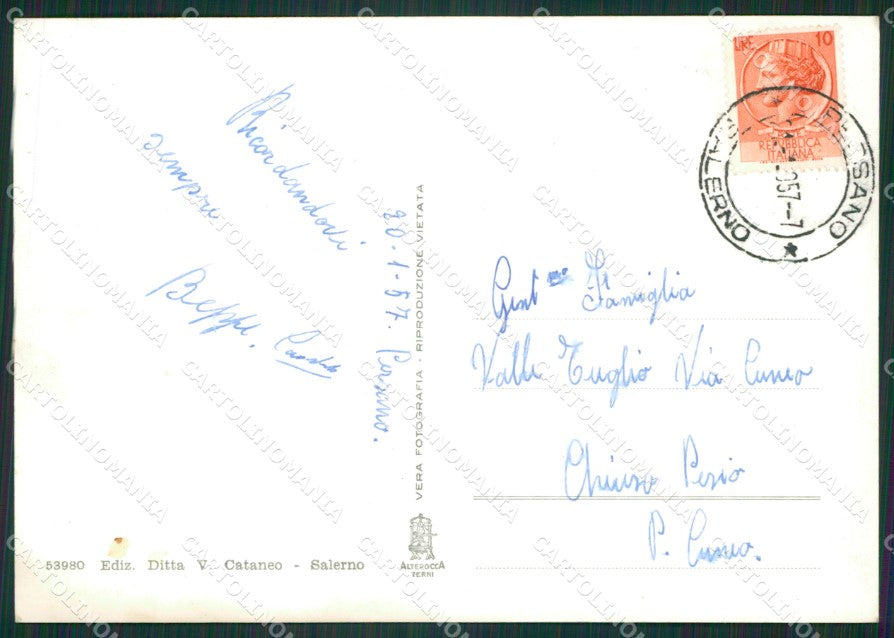 LIRE 10
REPUBBLICA
ITALIANA
PERSANO
SALERNO
957-7
Ricordandovi
sempre
Beppe.
20-1-57. Persano.
VERA FOTOGRAFIA - RIPRODUZIONE VIETATA
Gent Famiglia
Valle Tuglio Via Cuneo
Chiusa Pesio
P. Cuneo.
53980 Ediz. Ditta V. Cataneo - Salerno
ALTEROCCA
TERNI
CARTOLINOMANIA